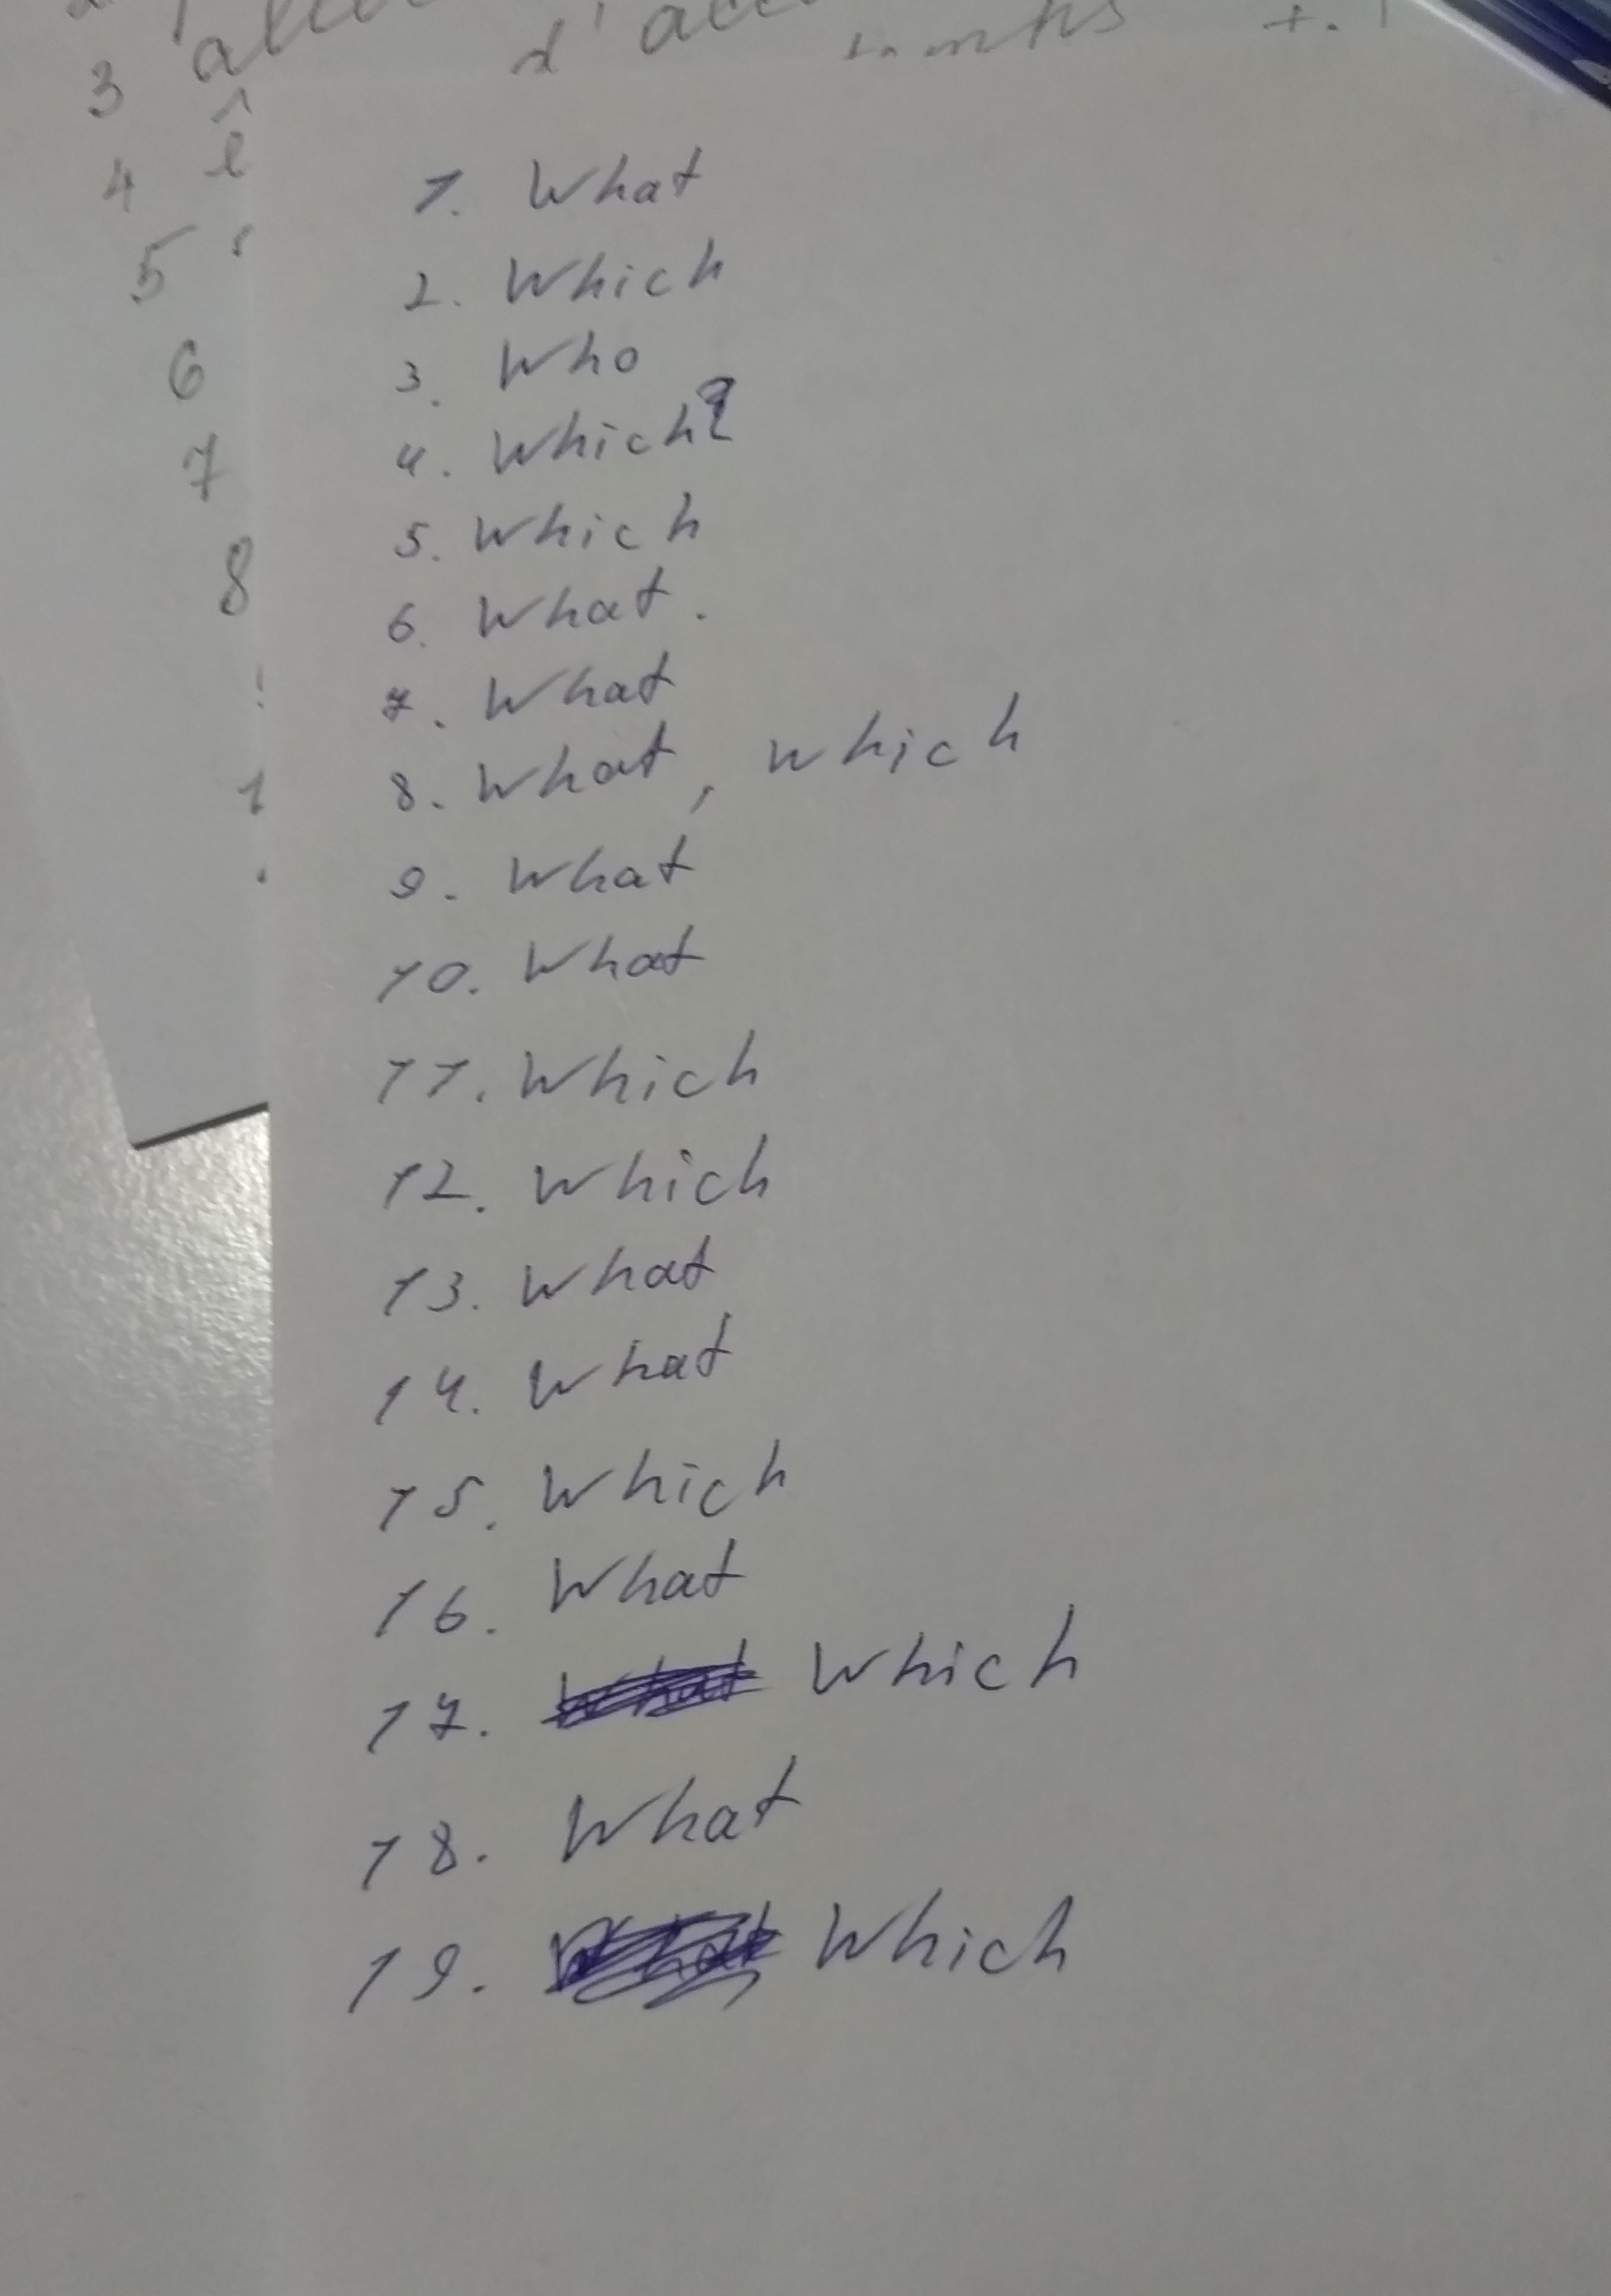 3 
4 ê
5
6
7
8
1. What
2. Which
3. Who
4. Which?
5. Which
6. What.
7. What
8. What, which
9. What
10. What
11. Which
12. Which
13. What
14. What
15. Which
16. What
17. What Which
18. What
19. What Which